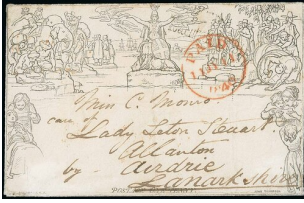 NAIRN
Miss C. Monro
care of
Lady Seton Steuart.
Allanton
by Airdrie
Lanarkshire
POSTAGE